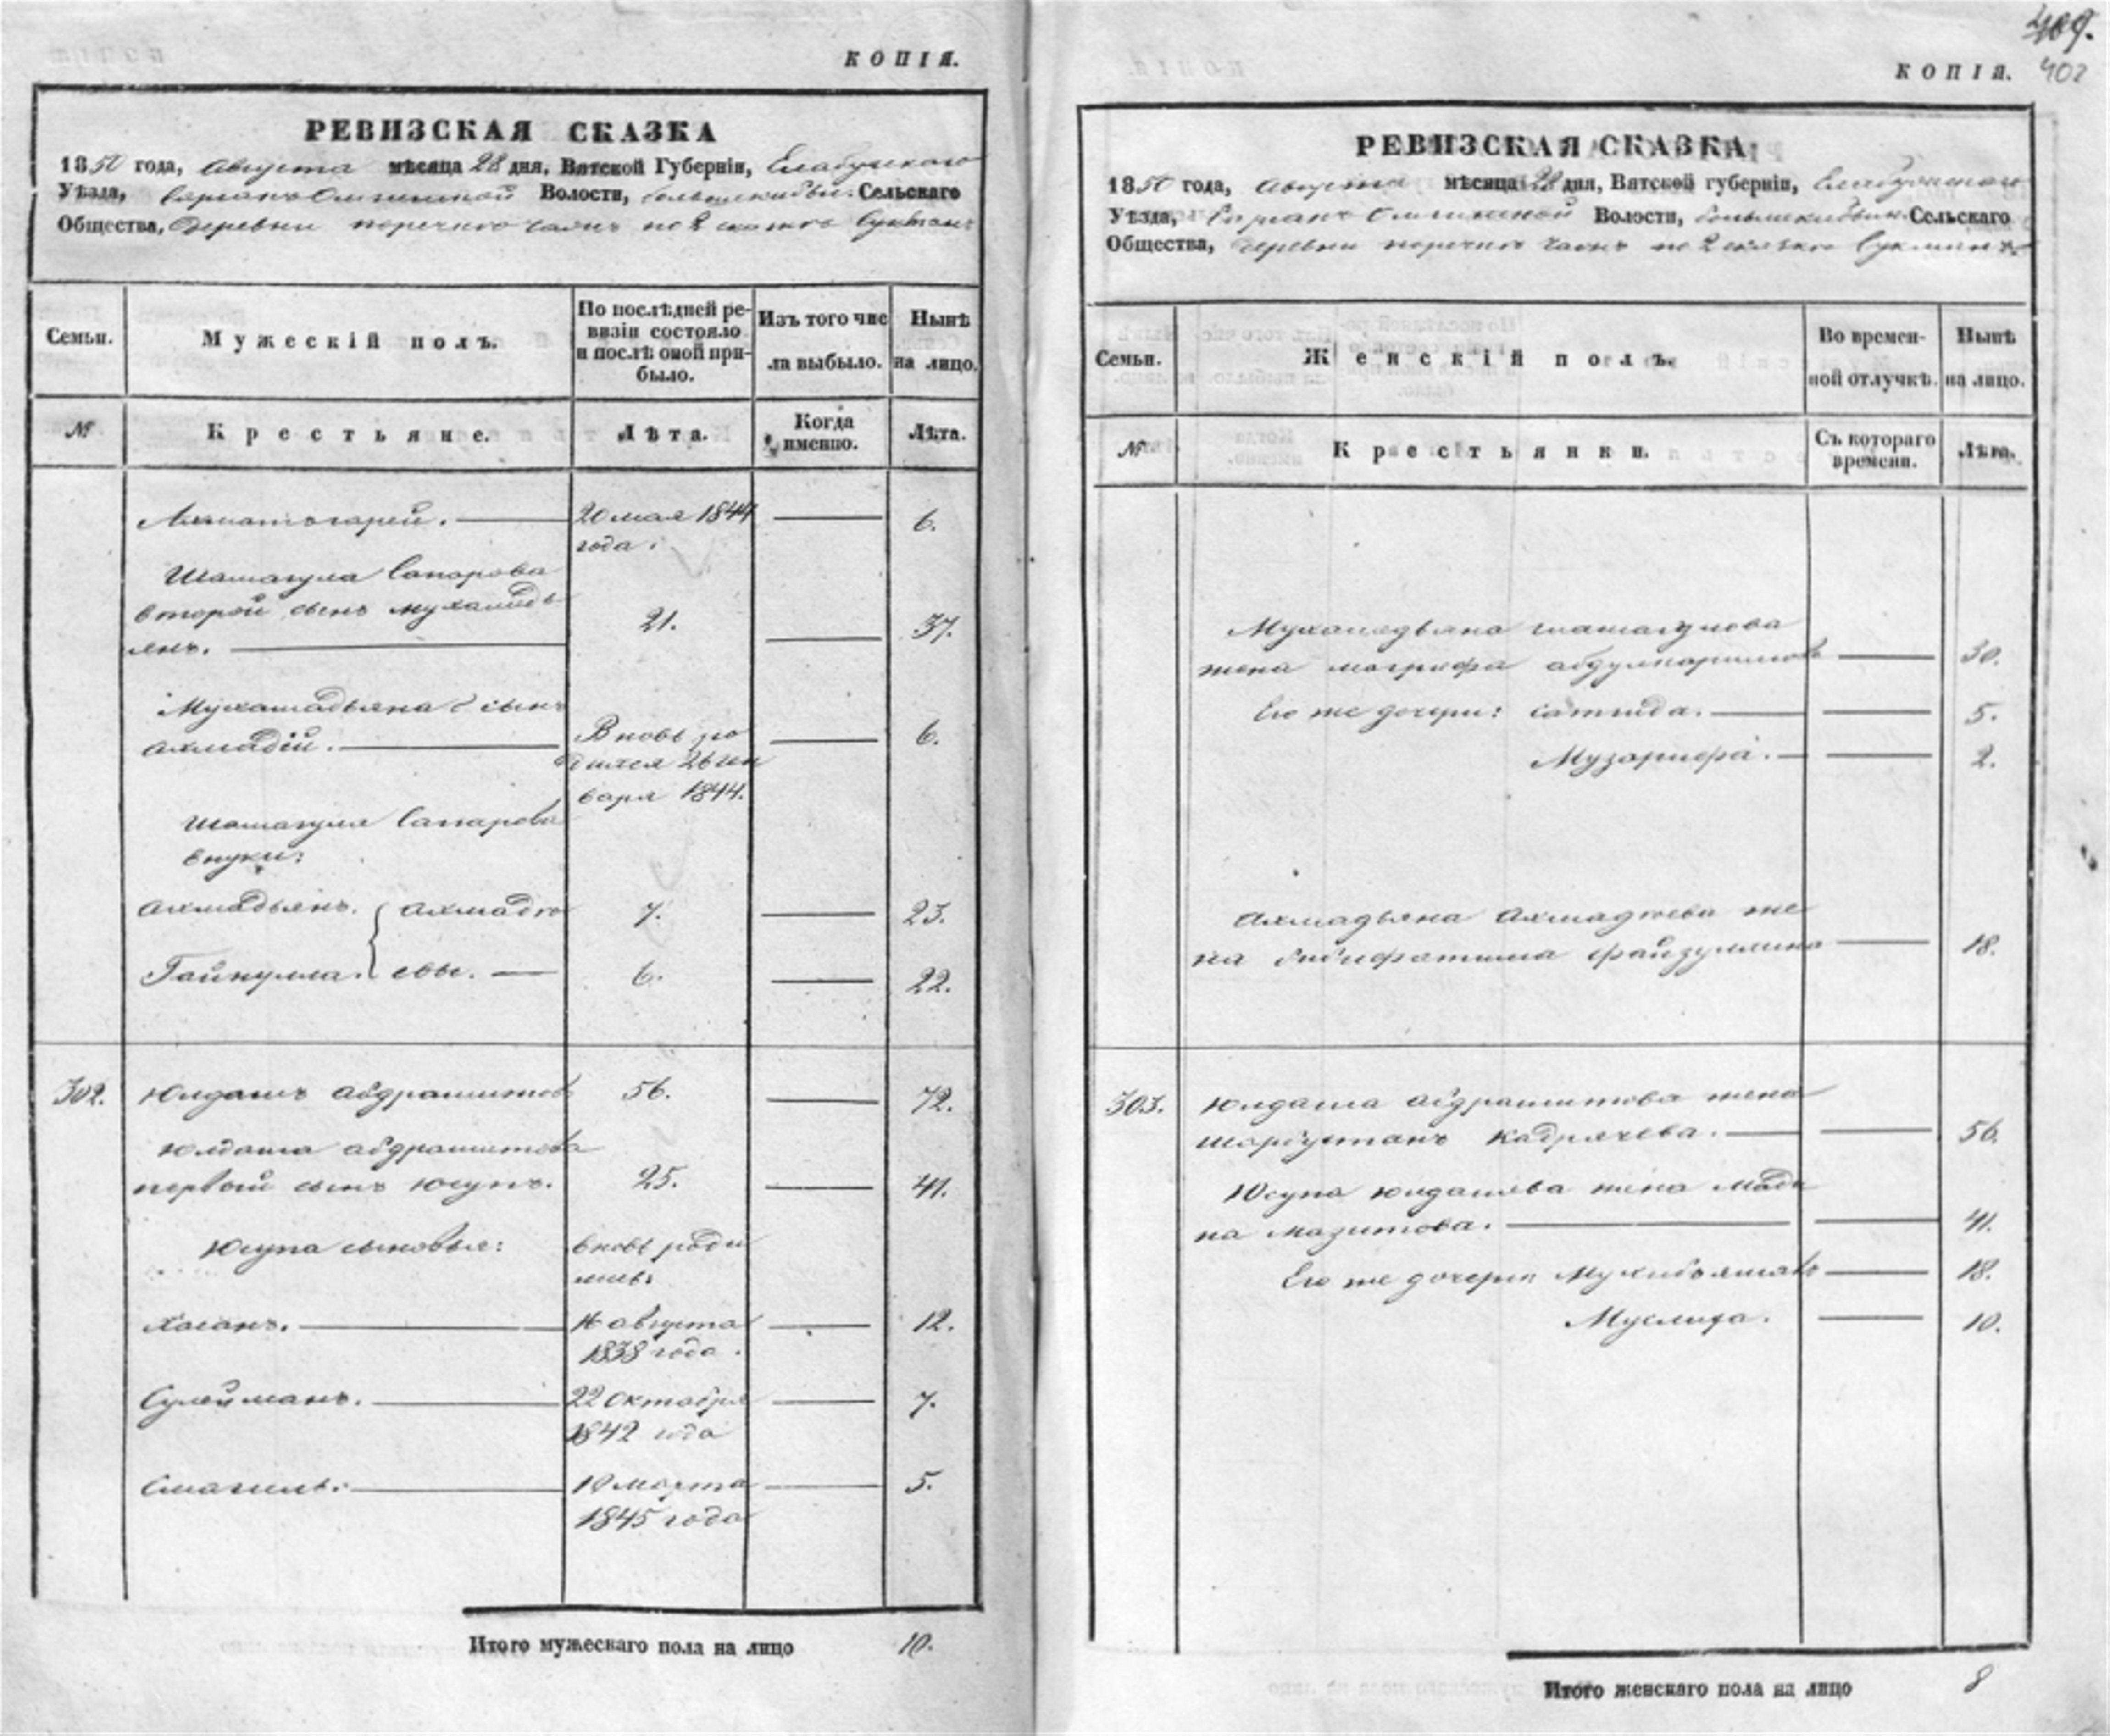 КОПІЯ.
РЕВИЗСКАЯ СКАЗКА
1850 года, Августа мѣсяца 28 дня, Вятской Губерніи, Елабужскаго
Уѣзда, Волости, Сельскаго
Общества, Деревни по 2
Семьи.
Мужескій полъ.
По послѣдней ре-
визіи состояло
и послѣ оной при-
было.
Изъ того чис
ла выбыло.
Нынѣ
на лицо.
№
Крестьяне.
Лѣта.
Когда
именно.
Лѣта.
Ахматьгарей. 20 мая 1844 6.
года.
Шамагула Сапарова
второй сынъ мухамадь 21. 37.
янъ.
Мухамадьяна сынъ
ахмадій. Вновь ро 6.
дился 26 ген
варя 1844.
Шамагула Сапарова
внуки:
Ахмадьянъ. Ахмадю 7. 23.
Гайнулла. евы. 6. 22.
302. Юлдашъ Абдрашитовъ 56. 72.
Юлдаша абдрашитова
первый сынъ Юсупъ. 25. 41.
Юсупа сыновья: вновь роди
лись:
Хасанъ. 16 августа 12.
1838 года.
Сулейманъ. 22 октября 7.
1842 года
Смагиль. 10 марта 5.
1845 года
Итого мужескаго пола на лицо 10.
409.
402
КОПІЯ.
РЕВИЗСКАЯ СКАЗКА
1850 года, Августа мѣсяца 28 дня, Вятской губерніи, Елабужскаго
Уѣзда, Волости, Сельскаго
Общества, Деревни по 2
Семьи.
Женскій полъ.
Во времен-
ной отлучкѣ.
Нынѣ
на лицо.
№
Крестьянки.
Съ котораго
времени.
Лѣта.
Мухамадьяна шамагулова
жена магрифа абдулкаримова 30.
Его же дочери: сагида. 5.
Музарифа. 2.
Ахмадьяна Ахмадюева же
на бибифатима файзуллина 18.
303. Юлдаша абдрашитова жена
шарбустанъ Кадрячева. 56.
Юсупа юлдашева жена Мади
на мазитова. 41.
Его же дочери 18.
Муслифа. 10.
Итого женскаго пола на лицо 8